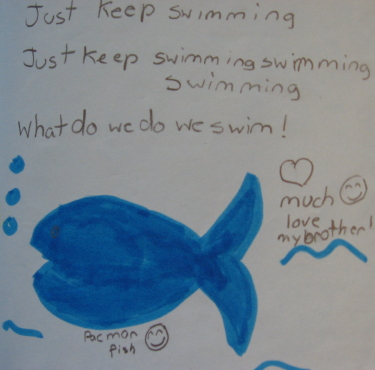 Just keep swimming
Just keep swimming swimming
swimming
what do we do we swim!
much
love
my brother!
Pacman
fish